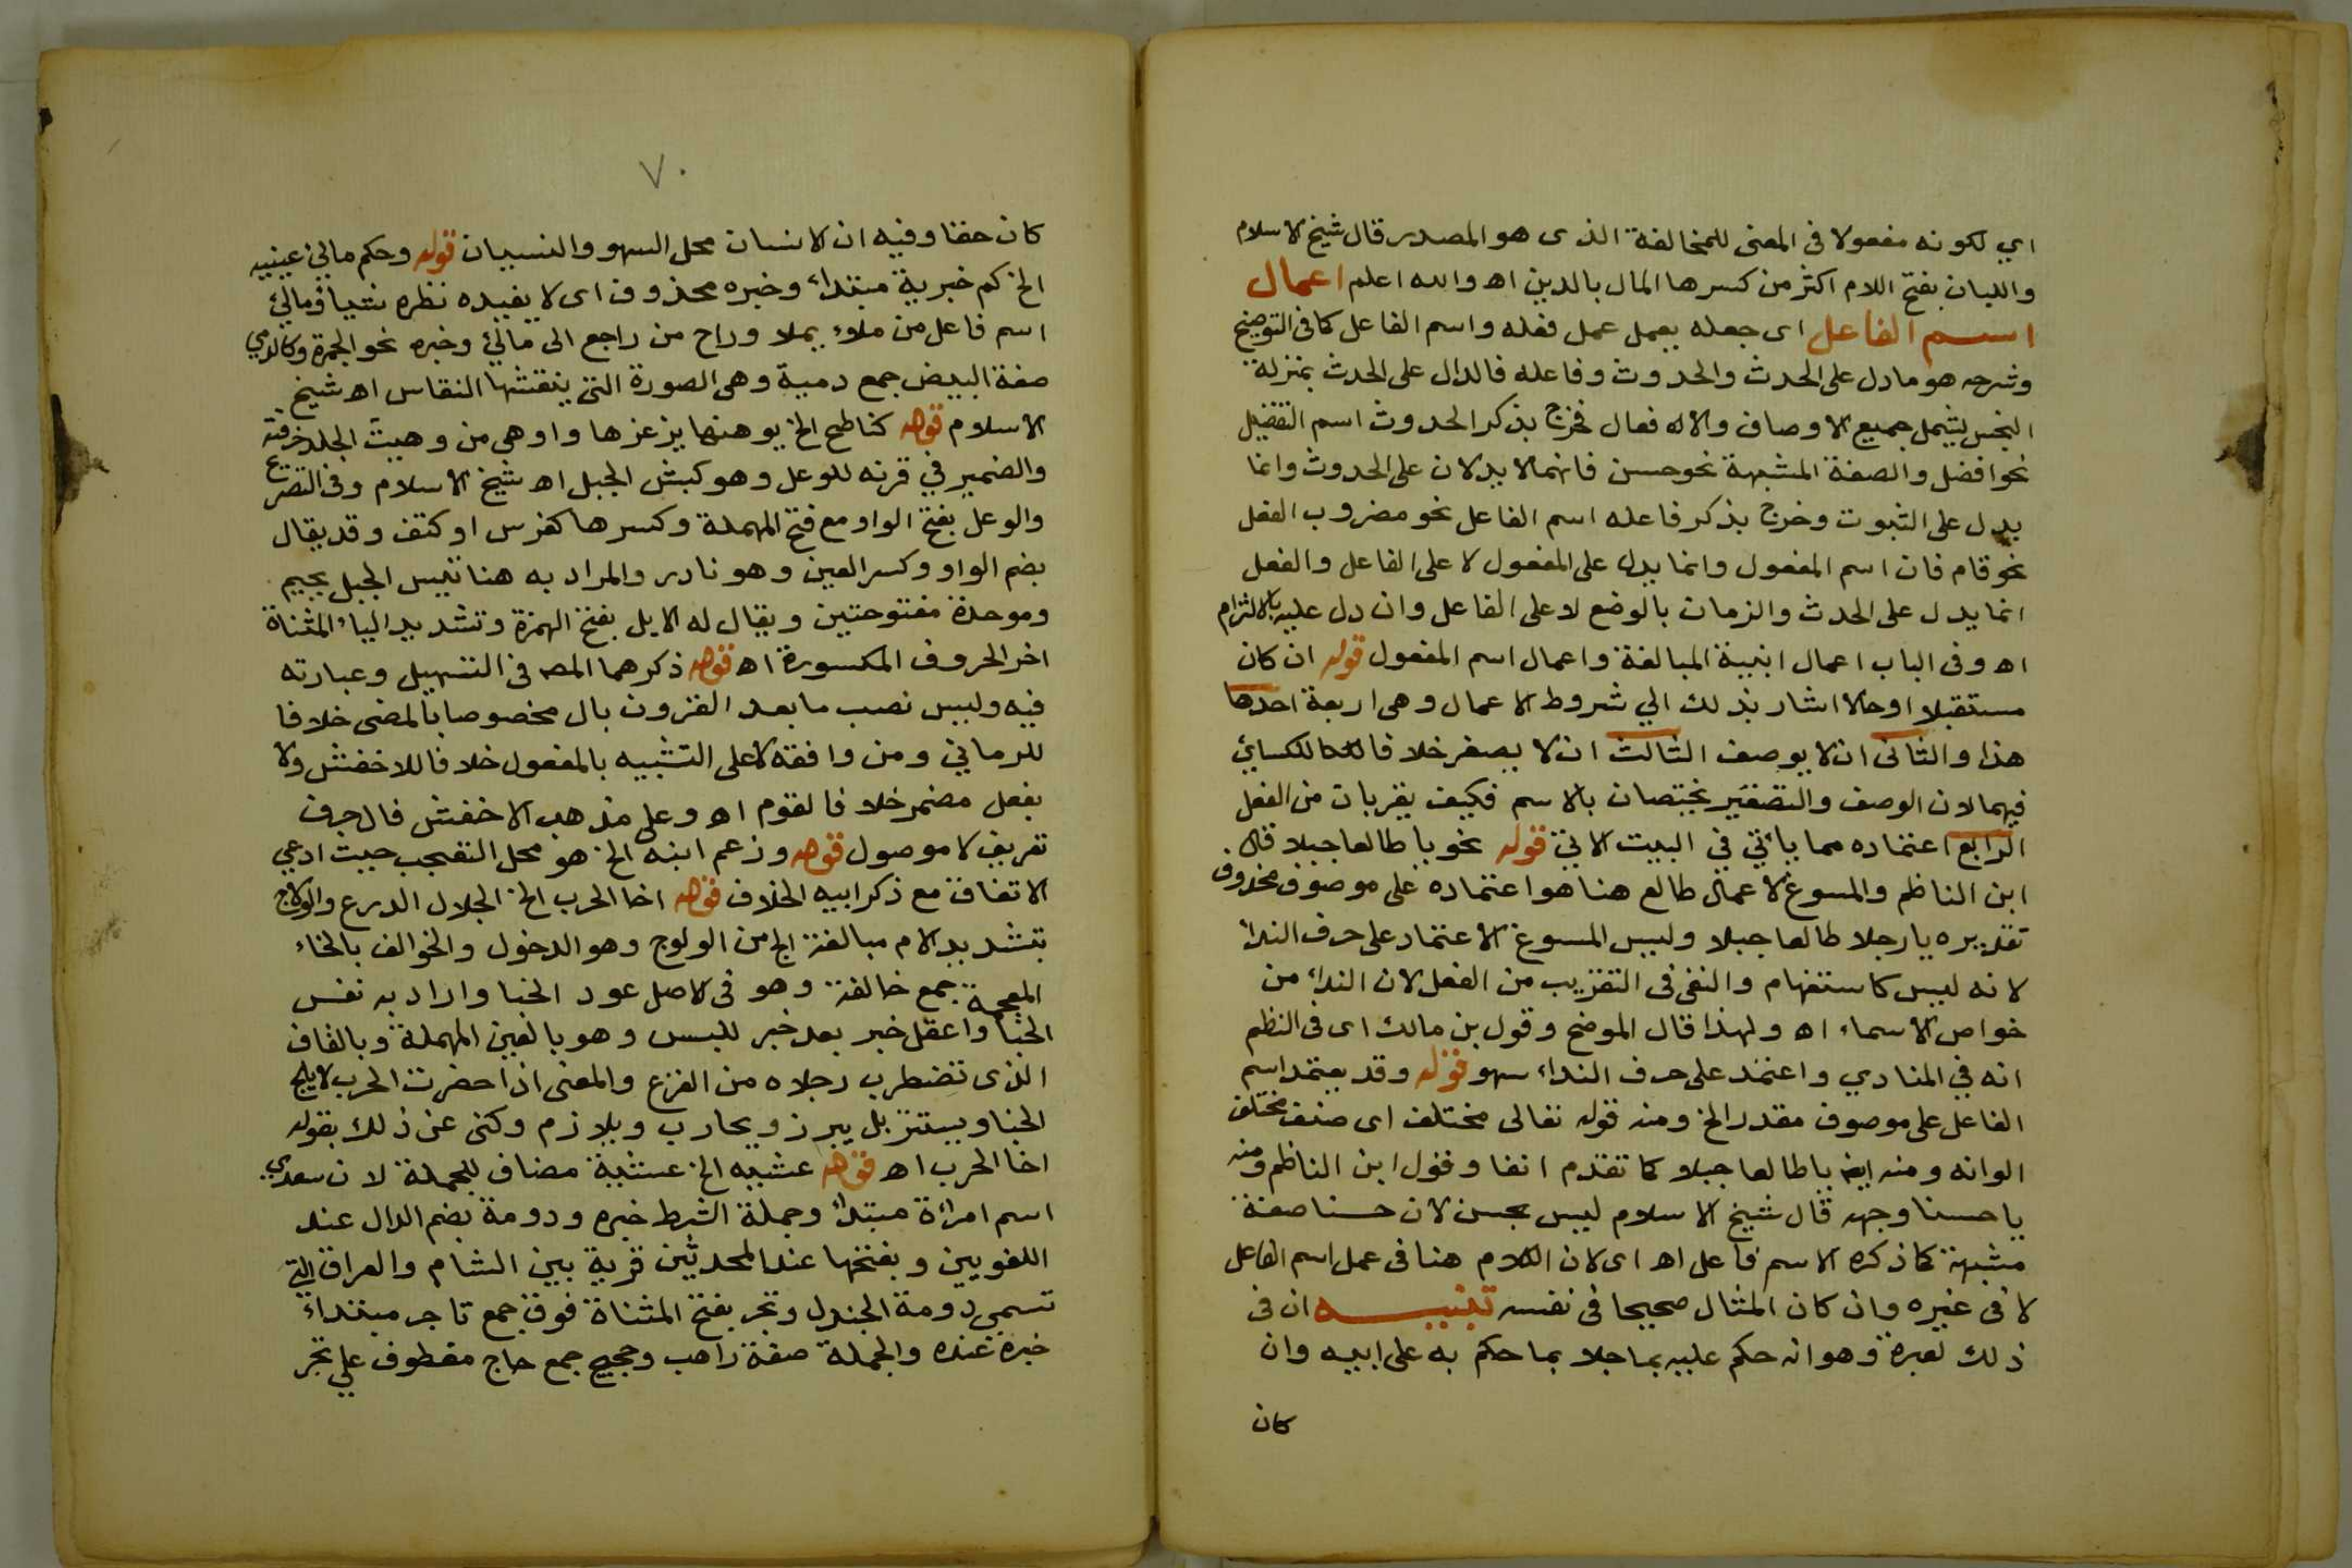 اي لكونه مفعولا فى المعنى للمخالفة الذى هو المصدر قال شيخ الاسلام
والليان بفتح اللام اكثر من كسرها المال بالدين اه والله اعلم اعمال
اسم الفاعل اى جعله يعمل عمل فعله واسم الفاعل كما فى التوضيح
وشرحه هو ما دل على الحدث والحدوث وفاعله فالدال على الحدث بمنزلة
الجنس يشمل جميع الاوصاف والافعال فخرج بذكر الحدوث اسم التفضيل
نحو افضل والصفة المشبهة نحو حسن فانهما لا يدلان على الحدوث وانما
يدل على الثبوت وخرج بذكر فاعله اسم الفاعل نحو مضروب الفعل
نحو قام فان اسم المفعول وانما يدل على المفعول لا على الفاعل والفعل
انما يدل على الحدث والزمان بالوضع لا على الفاعل وان دل عليه بالالتزام
اه وفى الباب اعمال ابنية المبالغة واعمال اسم المفعول قوله ان كان
مستقبلا او حالا اشار بذلك الي شروط الاعمال وهى اربعة احدها
هذا والثانى ان لا يوصف الثالث ان لا يصغر خلافا للكسائي
فيهما لان الوصف والتصغير يختصان بالاسم فكيف يقربان من الفعل
الرابع اعتماده مما يأتي في البيت الاتي قوله نحو يا طالعا جبلا قال
ابن الناظم والمسوغ لاعمال طالع هنا هو اعتماده على موصوف محذوف
تقديره يا رجلا طالعا جبلا وليس المسوغ الاعتماد على حرف الندا
لانه ليس كاستفهام والنفى فى التقريب من الفعل لان الندا من
خواص الاسماء اه ولهذا قال الموضح وقول بن مالك اى فى النظم
انه في المنادي واعتمد على حرف النداء سهو قوله وقد يعتمد اسم
الفاعل على موصوف مقدر الخ ومنه قوله تعالى مختلف اى صنف مختلف
الوانه ومنه ايضا يا طالعا جبلا كما تقدم انفا وقول ابن الناظم ومنه
يا حسنا وجهه قال شيخ الاسلام ليس بحسن لان حسنا صفة
مشبهة كما ذكره لا اسم فاعل اه اى لان الكلام هنا فى عمل اسم الفاعل
لا فى غيره وان كان المثال صحيحا فى نفسه تنبيه ان فى
ذلك لعبرة وهو انه حكم عليه بما جلا بما حكم به على ابيه وان
كان
٧٠
كان حقا وفيه ان الانسان محل السهو والنسيان قوله وكم مالئ عينيه
الخ كم خبرية مبتدأ وخبره محذوف اى لا يفيده نظره شيأ ومالئ
اسم فاعل من ملأ يملا وراح من راجع الى مالئ وخبره نحو الجمرة وكالدمي
صفة البيض جمع دمية وهى الصورة التى ينقشها النقاس اه شيخ
الاسلام قوله كناطح الخ يوهنها يزعزها واوهى من وهيت الجلد خرقته
والضمير في قرنه للوعل وهو كبش الجبل اه شيخ الاسلام وفى التصريح
والوعل بفتح الواو مع فتح المهملة وكسرها كفرس او كتف وقد يقال
بضم الواو وكسر العين وهو نادر والمراد به هنا تيس الجبل بجيم
وموحدة مفتوحتين ويقال له الايل بفتح الهمزة وتشديد الياء المثناة
اخر الحروف المكسورة اه قوله ذكرهما المصـ فى التسهيل وعبارته
فيه وليس نصب ما بعد المقرون بال مخصوصا بالمضى خلافا
للرماني ومن وافقه لا على التشبيه بالمفعول خلافا للاخفش ولا
بفعل مضمر خلافا لقوم اه وعلى مذهب الاخفش فال حرف
تعريف لا موصول قوله وزعم ابنه الخ هو محل التعجب حيث ادعي
الاتفاق مع ذكر ابيه الخلاف قوله اخا الحرب الخ الجلال الدرع والولاج
بتشديد الام مبالغة الخ من الولوج وهو الدخول والخوالف بالخاء
المعجمة جمع خالفة وهو فى الاصل عود الخبا واراد به نفس
الخبا واعقل خبر بعد خبر لليس وهو بالعين المهملة وبالقاف
الذى تضطرب رجلاه من الفزع والمعنى اذا حضرت الحرب لا يلج
الخبا ويستتر بل يبرز ويحارب ويلازم وكنى عن ذلك بقوله
اخا الحرب اه قوله عشيه الخ عشية مضاف للجملة لان سعدي
اسم امرأة مبتدا وجملة الشرط خبره ودومة بضم الدال عند
اللغويين وبفتحها عند المحدثين قرية بين الشام والعراق التى
تسمى دومة الجندل وتجر بفتح المثناة فوق جمع تاجر مبتداء
خبره عنده والجملة صفة راهب وحجيج جمع حاج معطوف علي تجر